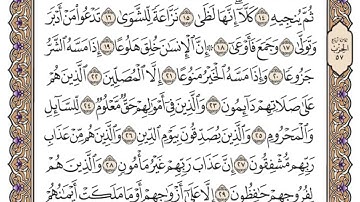 ثُمَّ يُنجِيهِ ١٤ كَلَّآ إِنَّهَا لَظَىٰ ١٥ نَزَّاعَةً لِّلشَّوَىٰ ١٦ تَدْعُوا۟ مَنْ أَدْبَرَ
وَتَوَلَّىٰ ١٧ وَجَمَعَ فَأَوْعَىٰٓ ١٨ ۞ إِنَّ ٱلْإِنسَـٰنَ خُلِقَ هَلُوعًا ١٩ إِذَا مَسَّهُ ٱلشَّرُّ
جَزُوعًا ٢٠ وَإِذَا مَسَّهُ ٱلْخَيْرُ مَنُوعًا ٢١ إِلَّا ٱلْمُصَلِّينَ ٢٢ ٱلَّذِينَ هُمْ
عَلَىٰ صَلَاتِهِمْ دَآئِمُونَ ٢٣ وَٱلَّذِينَ فِىٓ أَمْوَٰلِهِمْ حَقٌّ مَّعْلُومٌ ٢٤ لِّلسَّآئِلِ
وَٱلْمَحْرُومِ ٢٥ وَٱلَّذِينَ يُصَدِّقُونَ بِيَوْمِ ٱلدِّينِ ٢٦ وَٱلَّذِينَ هُم مِّنْ عَذَابِ
رَبِّهِم مُّشْفِقُونَ ٢٧ إِنَّ عَذَابَ رَبِّهِمْ غَيْرُ مَأْمُونٍ ٢٨ وَٱلَّذِينَ هُمْ
لِفُرُوجِهِمْ حَـٰفِظُونَ ٢٩ إِلَّا عَلَىٰٓ أَزْوَٰجِهِمْ أَوْ مَا مَلَكَتْ أَيْمَـٰنُهُمْ
الحزب
٥٧